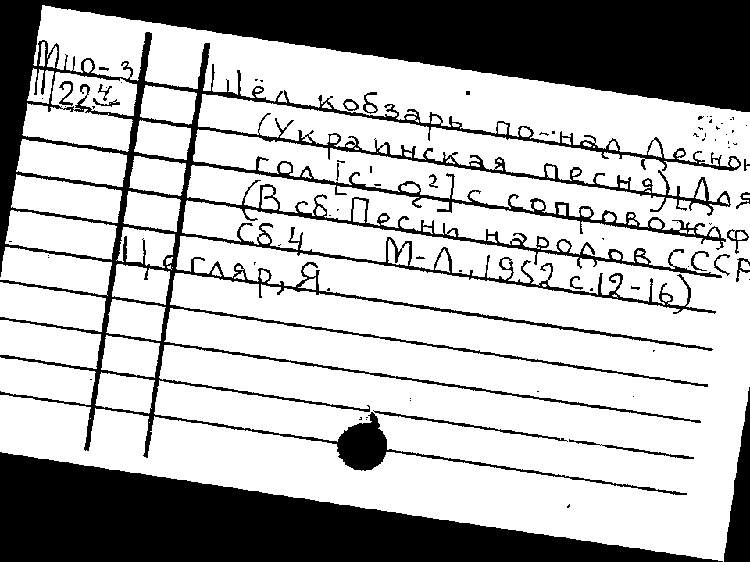 М110-3
1224
Шёл кобзарь по-над Десно
(Украинская песня) Для
гол [c'-g²] с сопровожд ф
(В сб: Песни народов СССР
Сб 4 М-Л., 1952 с.12-16)
Цегляр, Я.